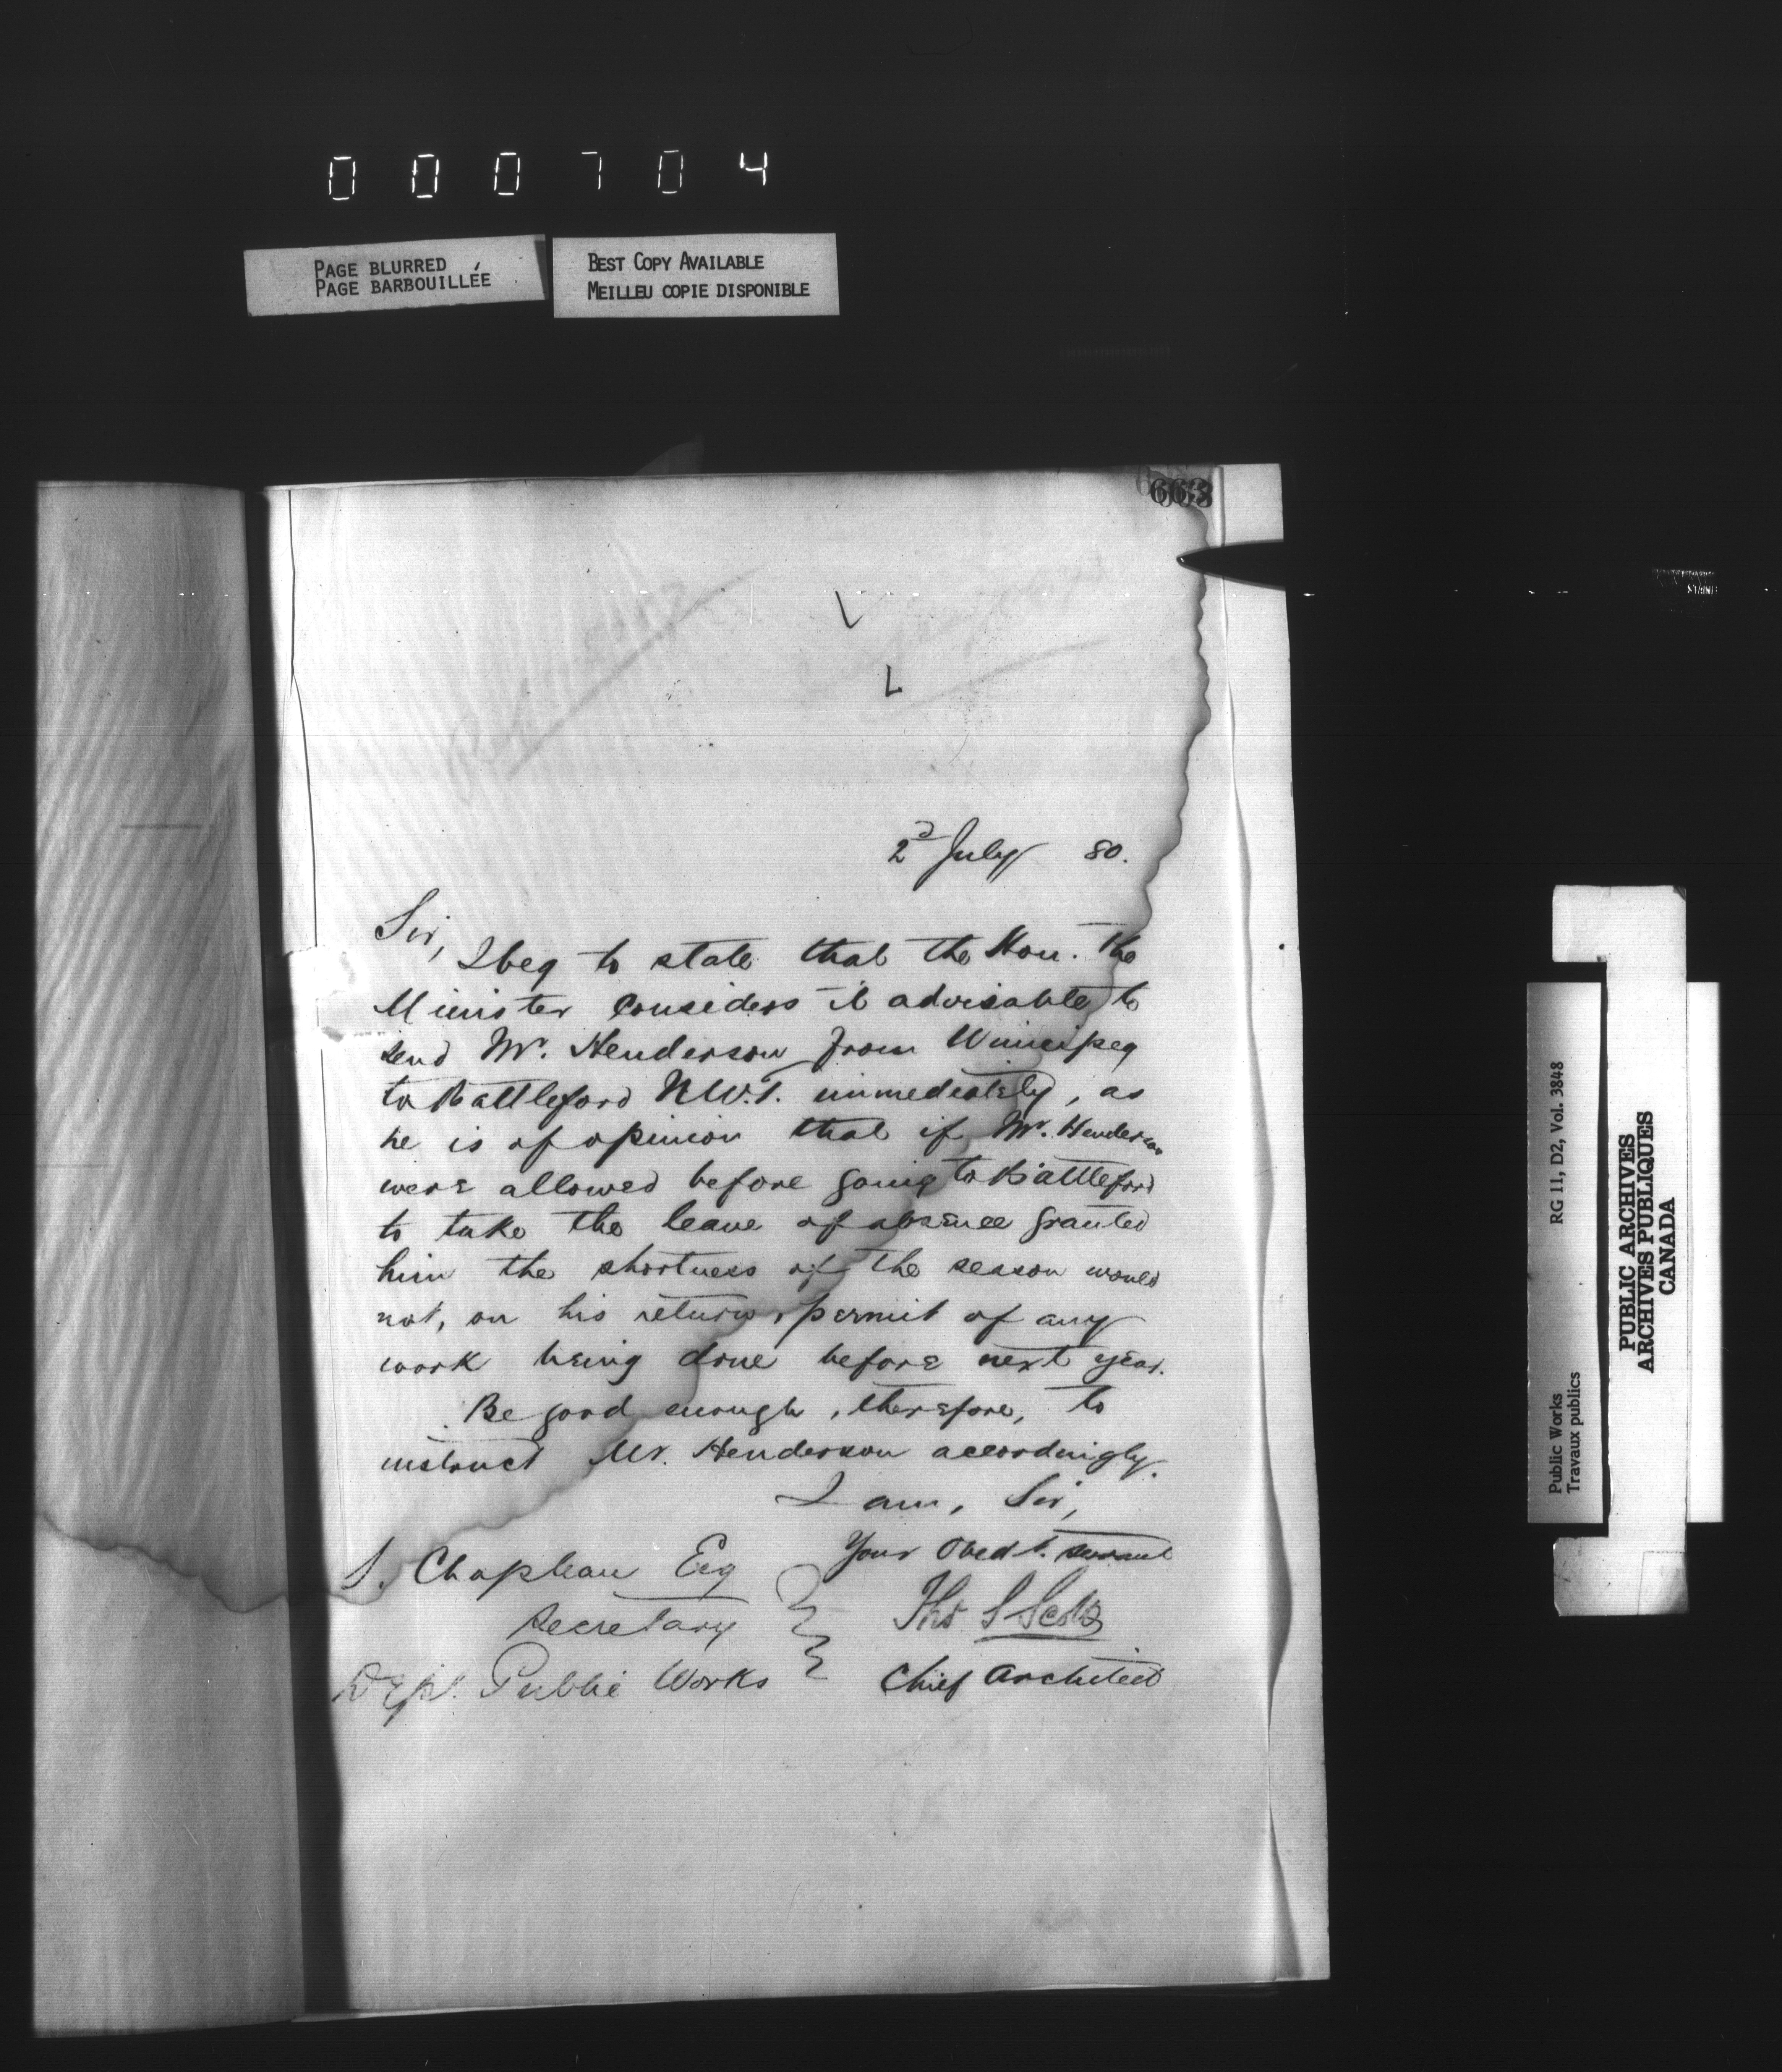 000704
PAGE BLURRED
PAGE BARBOUILLÉE
BEST COPY AVAILABLE
MEILLEU COPIE DISPONIBLE
663
2d July 80.
Sir,
I beg to state that the Hon. the
Minister considers it advisable to
send Mr. Henderson from Winnipeg
to Battleford N.W.T. immediately, as
he is of opinion that if Mr. Henderson
were allowed before going to Battleford
to take the leave of absence granted
him the shortness of the season would
not, on his return, permit of any
work being done before next year.
Be good enough, therefore, to
instruct Mr. Henderson accordingly.
I am, Sir,
Your Obedt. servant
S. Chapleau Esq
Thos S Scott
Secretary
Dept. Public Works
Chief Architect
RG 11, D2, Vol. 3848
Public Works
Travaux publics
PUBLIC ARCHIVES
ARCHIVES PUBLIQUES
CANADA